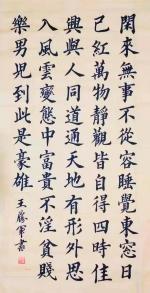 閑來無事不從容睡覺東窓日
已紅萬物靜觀皆自得四時佳
興與人同道通天地有形外思
入風雲變態中富貴不淫貧賤
樂男兒到此是豪雄
王藤軍書